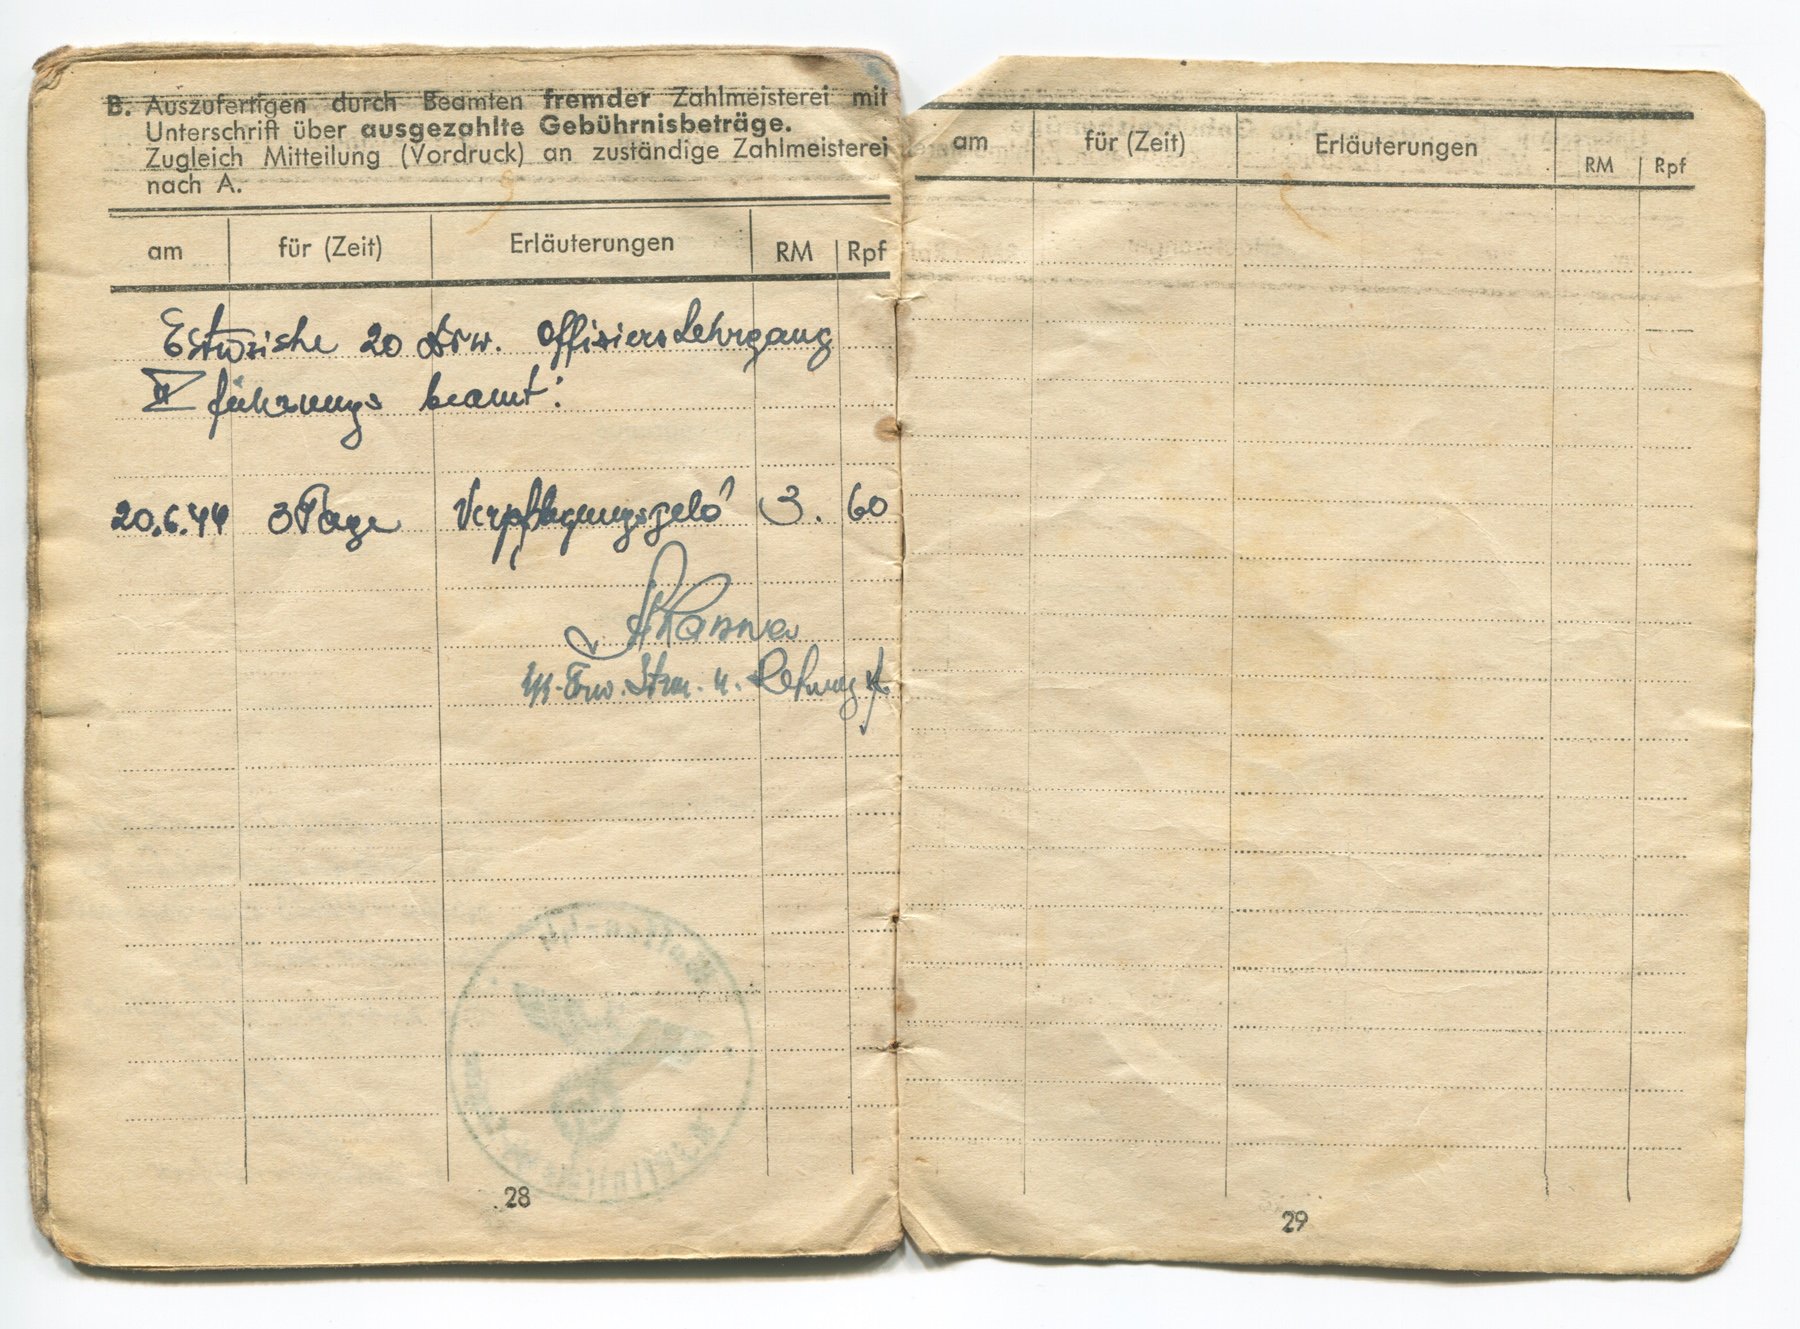 B. Auszufertigen durch Beamten fremder Zahlmeisterei mit
Unterschrift über ausgezahlte Gebührnisbeträge.
Zugleich Mitteilung (Vordruck) an zuständige Zahlmeisterei
nach A.
am für (Zeit) Erläuterungen RM Rpf
20 Offiziers Lehrgang
führungs beamt.
20.6.44 3 Tage Verpflegungsgeld 3. 60
28
am für (Zeit) Erläuterungen RM Rpf
29